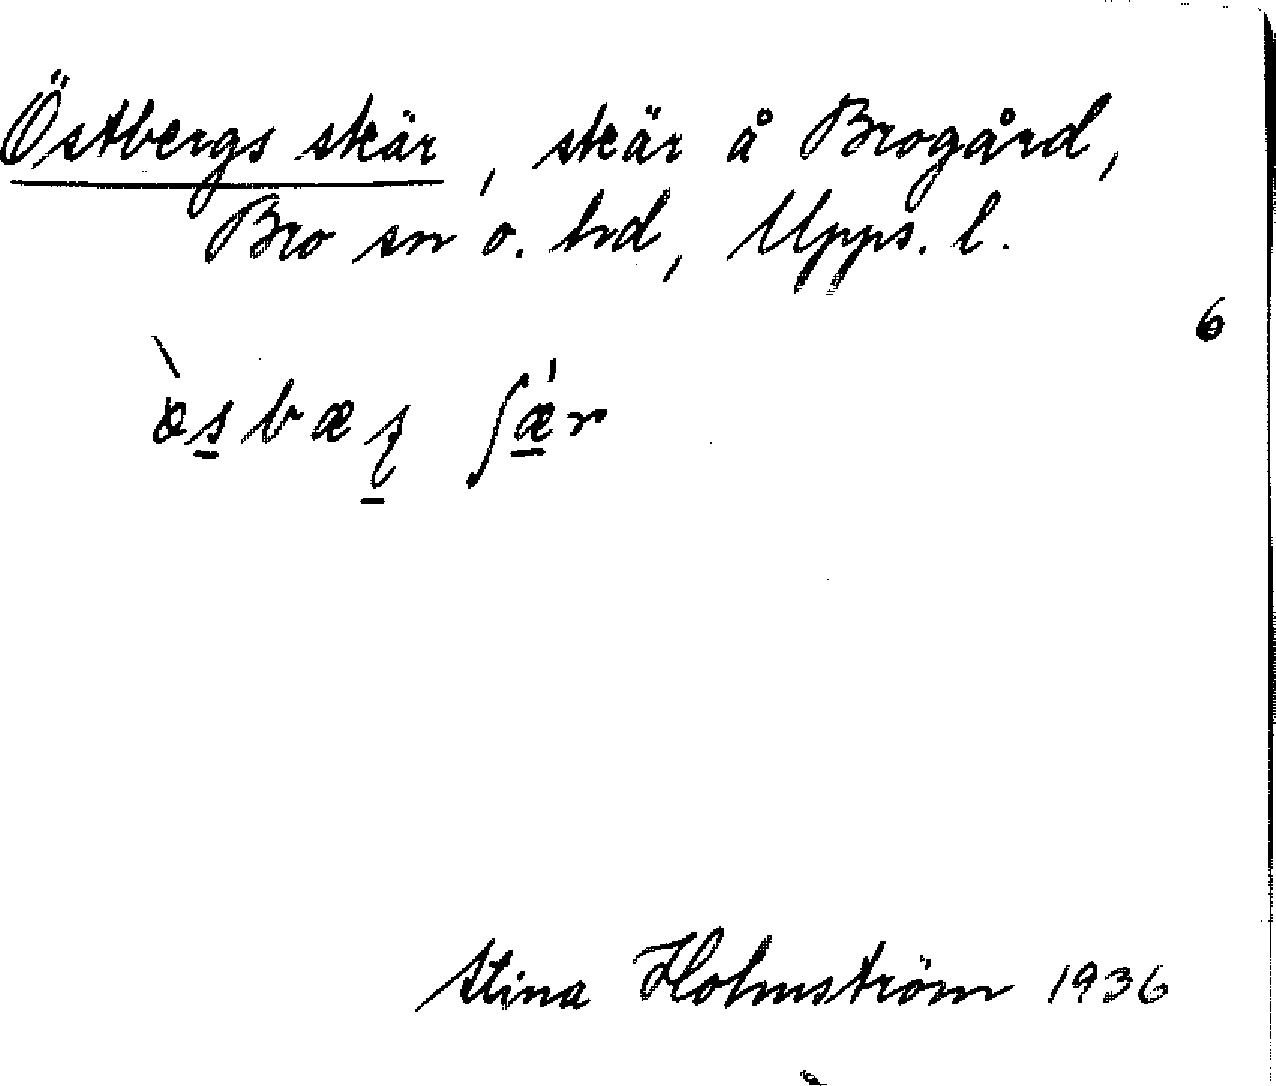 Östbergs skär, skär å Brogård,
Bro sn o. hd, Upps. l.
6
Stina Holmström 1936